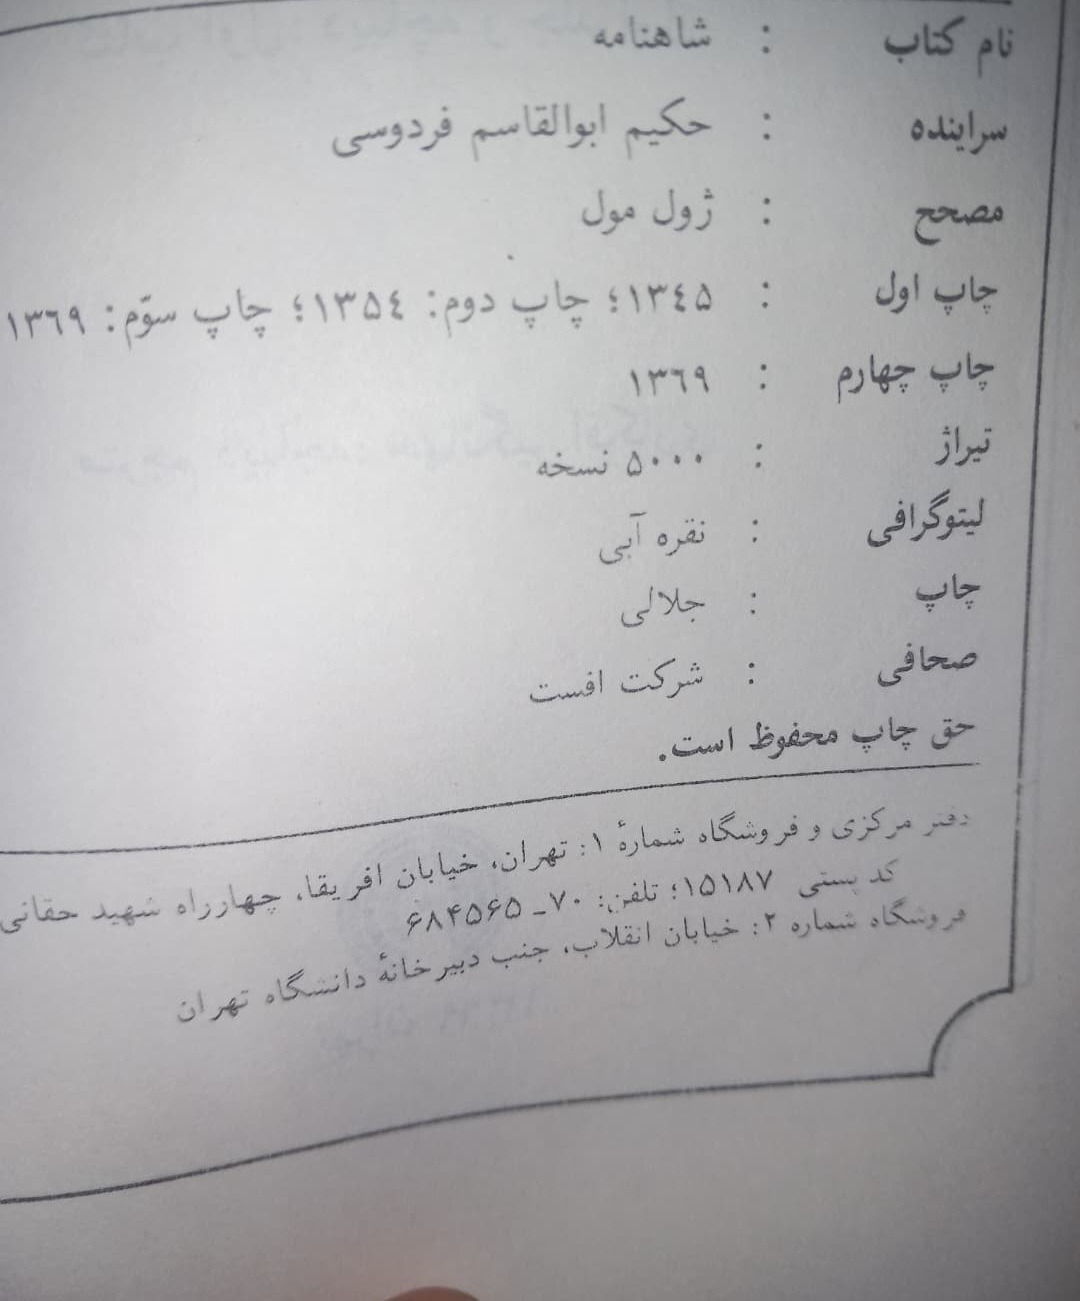 نام کتاب : شاهنامه
سراینده : حکیم ابوالقاسم فردوسی
مصحح : ژول مول
چاپ اول : ۱۳٤۵؛ چاپ دوم: ۱۳۵٤؛ چاپ سوّم: ۱۳٦۹
چاپ چهارم : ۱۳٦۹
تیراژ : ۵۰۰۰ نسخه
لیتوگرافی : نقره آبی
چاپ : جلالی
صحافی : شرکت افست
حق چاپ محفوظ است.
دفتر مرکزی و فروشگاه شمارهٔ ۱: تهران، خیابان افریقا، چهارراه شهید حقانی
کد پستی ۱۵۱۸۷؛ تلفن: ۷۰ـ ۶۸۴۵۶۵
فروشگاه شماره ۲: خیابان انقلاب، جنب دبیرخانهٔ دانشگاه تهران